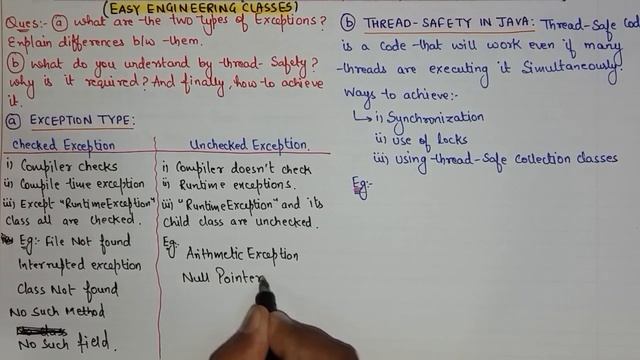 (EASY ENGINEERING CLASSES)
Ques:- (a) what are the two types of Exceptions?
Explain differences b/w them.
(b) what do you understand by thread-Safety?
why is it required? And finally, how to achieve
it.
(a) EXCEPTION TYPE:
Checked Exception
i) Compiler checks
ii) Compile-time exception
iii) Except "RuntimeException"
class all are checked.
Eg:- File Not found
Interrupted exception
Class Not found
No Such Method
No Such field.
Unchecked Exception.
i) Compiler doesn't check
ii) Runtime exceptions.
iii) "RuntimeException" and its
Child class are unchecked.
Eg:
Arithmetic Exception
Null Pointer
(b) THREAD-SAFETY IN JAVA: Thread-Safe Cod
is a code that will work even if many
threads are executing it Simultaneously.
Ways to achieve:-
i) Synchronization
ii) use of locks
iii) using thread-Safe collection classes
Eg:-